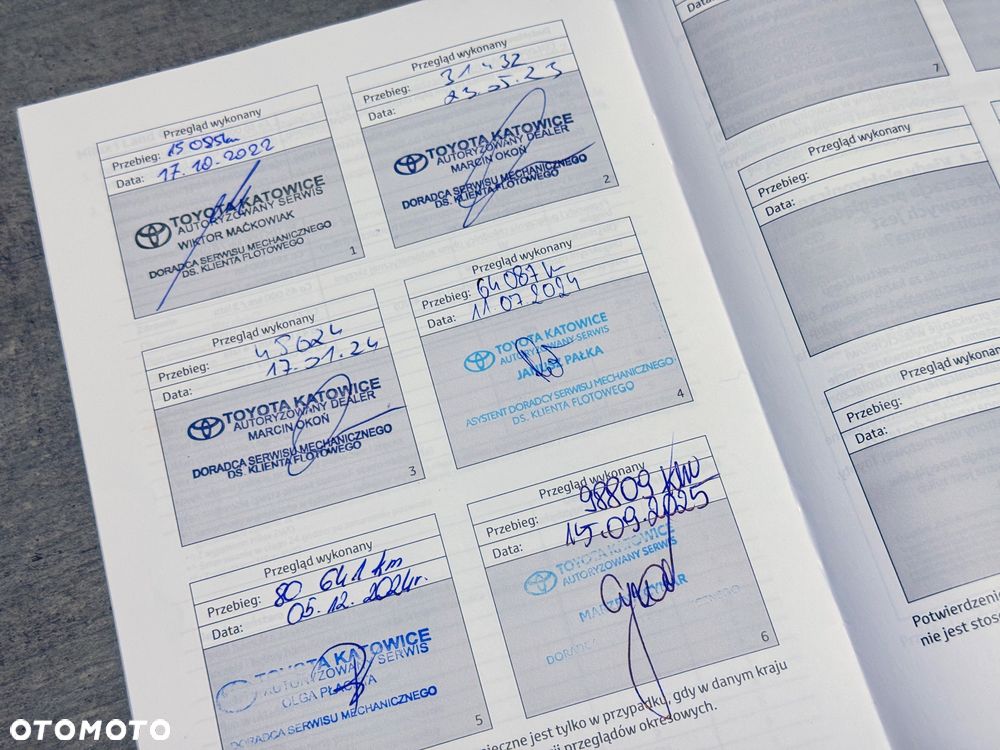 Przegląd wykonany
Przebieg: 15 085km
Data: 17.10.2022
TOYOTA KATOWICE
AUTORYZOWANY SERWIS
WIKTOR MAĆKOWIAK
DORADCA SERWISU MECHANICZNEGO
DS. KLIENTA FLOTOWEGO
1
Przegląd wykonany
Przebieg: 31432
Data: 23.05.23
TOYOTA KATOWICE
AUTORYZOWANY DEALER
MARCIN OKOŃ
DORADCA SERWISU MECHANICZNEGO
DS. KLIENTA FLOTOWEGO
2
Przegląd wykonany
Przebieg: 45624
Data: 17.01.24
TOYOTA KATOWICE
AUTORYZOWANY DEALER
MARCIN OKOŃ
DORADCA SERWISU MECHANICZNEGO
DS. KLIENTA FLOTOWEGO
3
Przegląd wykonany
Przebieg: 64 087k
Data: 11.07.2024
TOYOTA KATOWICE
AUTORYZOWANY SERWIS
PAŁKA
ASYSTENT DORADCY SERWISU MECHANICZNEGO
DS. KLIENTA FLOTOWEGO
4
Przegląd wykonany
Przebieg: 80 641 km
Data: 05.12.2024r.
TOYOTA KATOWICE
AUTORYZOWANY SERWIS
OLGA
DORADCA SERWISU MECHANICZNEGO
5
Przegląd wykonany
Przebieg: 98809 KM
Data: 15.09.2025
TOYOTA KATOWICE
AUTORYZOWANY SERWIS
6
jest tylko w przypadku, gdy w danym kraju
przeglądów okresowych.
Data:
7
Przegląd wykonany
Przebieg:
Data:
Przegląd wykonany
Przebieg:
Data:
Potwierdzenie
nie jest
OTOMOTO